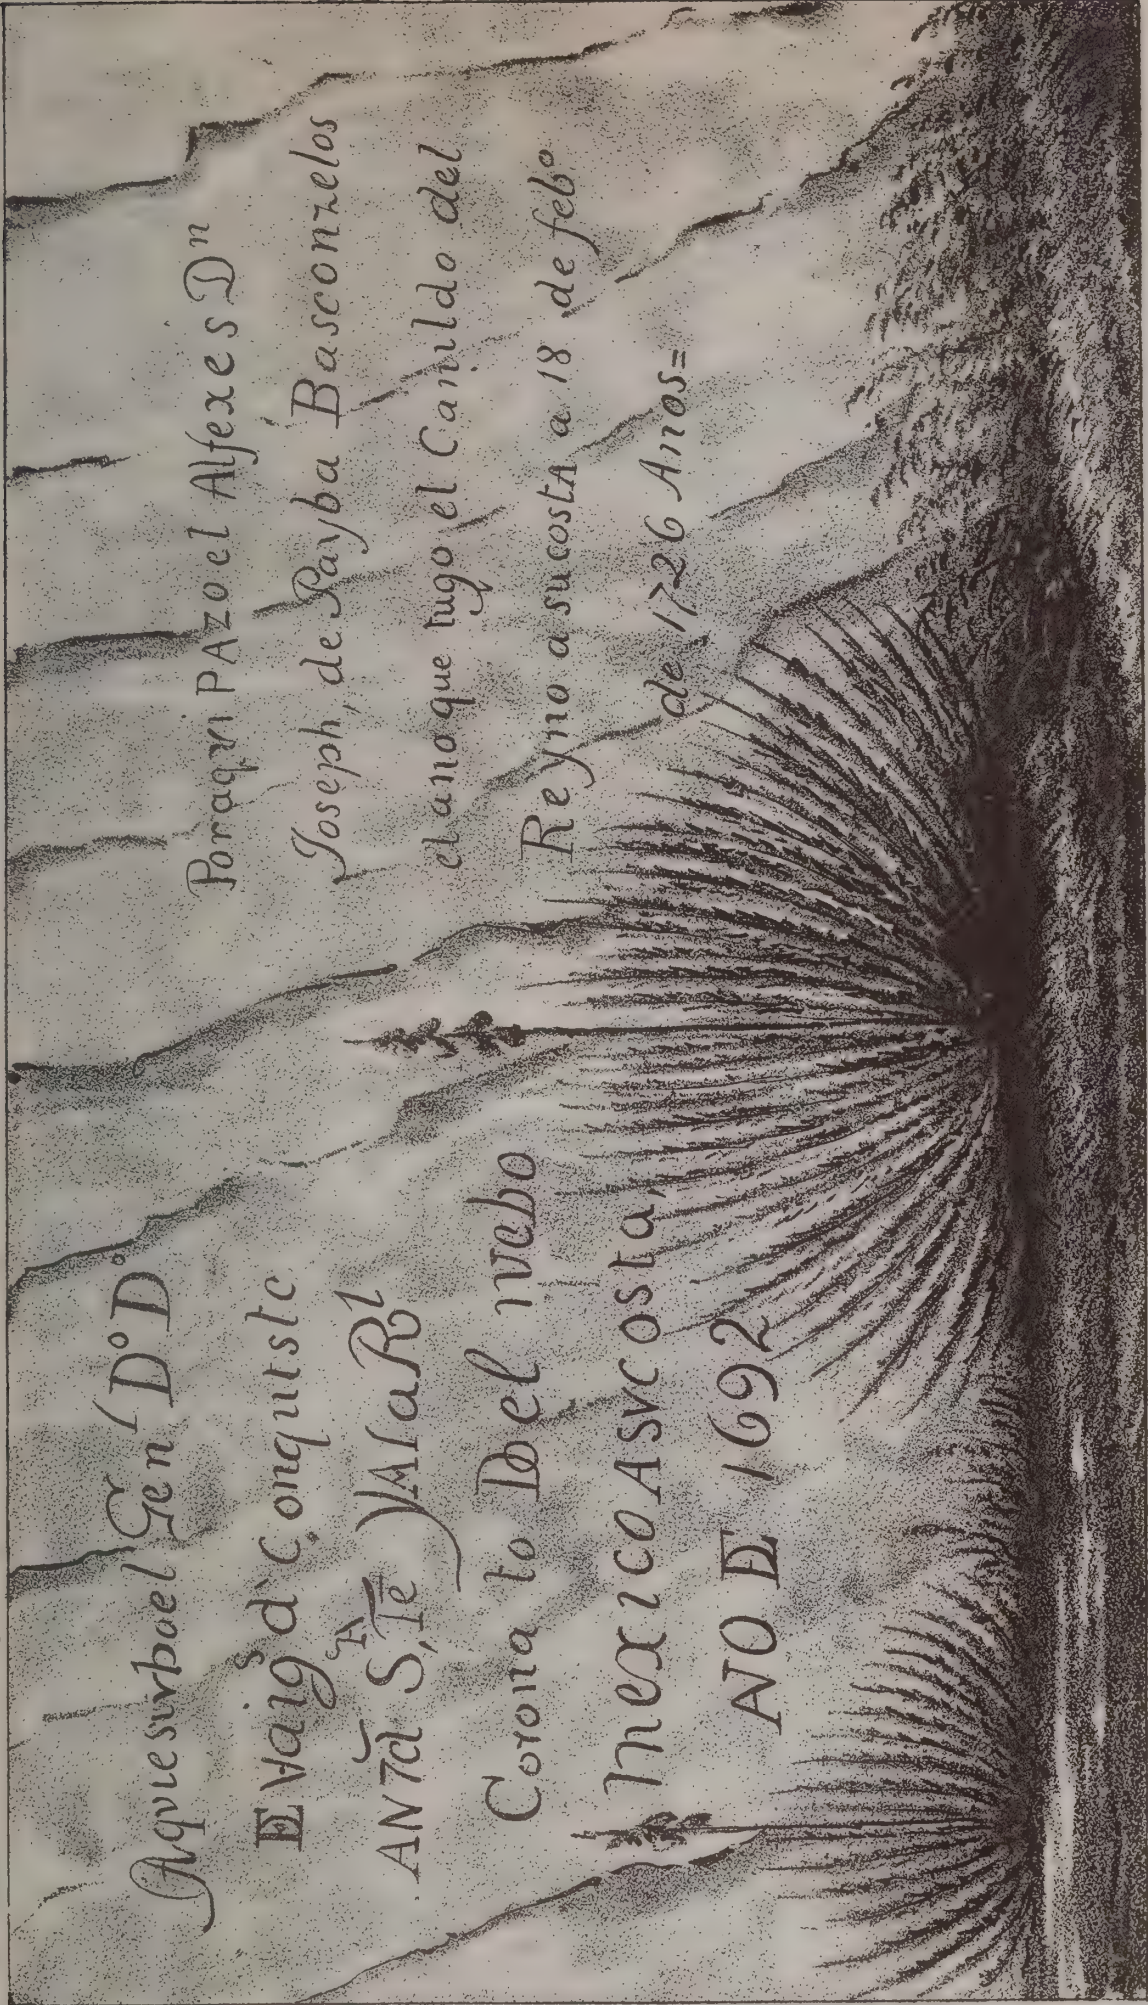 Aqui estubo el Genl Do Do
DE Vargs d c onquiste
ANTA S,TA Fe YAlaRl
Corona to DE el nuebo
mexico Asvcosta,
AÑO DE 1692
Poraqui PAzo el Alfexes Dn
Joseph, de Payba Basconzelos
el ano que tugo el Cavildo del
Reyno a su costA a 18 de febo
de 1726 Anos=